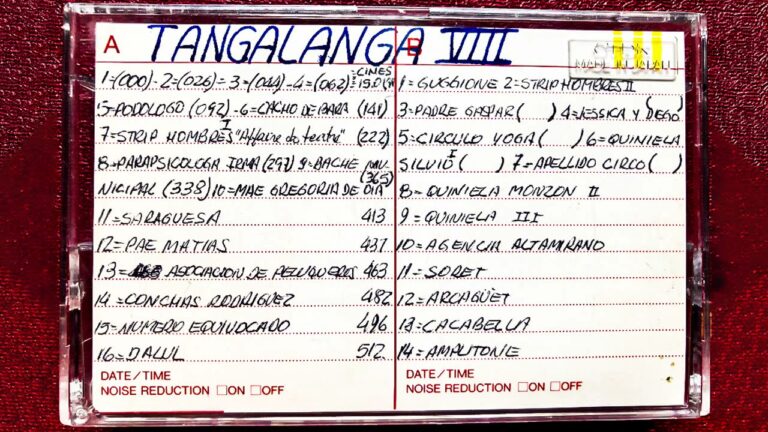 A TANGALANGA B VIIII
1=(000)-2=(026)=3=(044)-4=(062)=CINES
5=PODOLOGO (092)-6=CACHO DE BARA (141)
7=STRIP HOMBRES I "Affaire do teatro" (222)
8=PARAPSICOLOGA IRMA (291) 9=BACHE MU
NICIPAL (338) 10=MAE GREGORIA DE DIA (365)
11=SARAGUESA 413
12=PAE MATIAS 437
13= ASOCIACION DE PELUQUEROS 463
14=CONCHAS RODRIGUEZ 482
15=NUMERO EQUIVOCADO 496
16=DALUL 512
DATE/TIME
NOISE REDUCTION ☐ON ☐OFF
1=GUGGIONE 2=STRIP HOMBRES II
3=PADRE GASPAR ( ) 4=JESSICA Y DIEGO ( )
5=CIRCULO YOGA ( ) 6=QUINIELA
SILVIO I ( ) 7=APELLIDO CIRCO ( )
8=QUINIELA MONZON II
9=QUINIELA III
10=AGENCIA ALTAMIRANO
11=SORET
12=ARCAGUET
13=CACABELLA
14=AMPUTONE
DATE/TIME
NOISE REDUCTION ☐ON ☐OFF